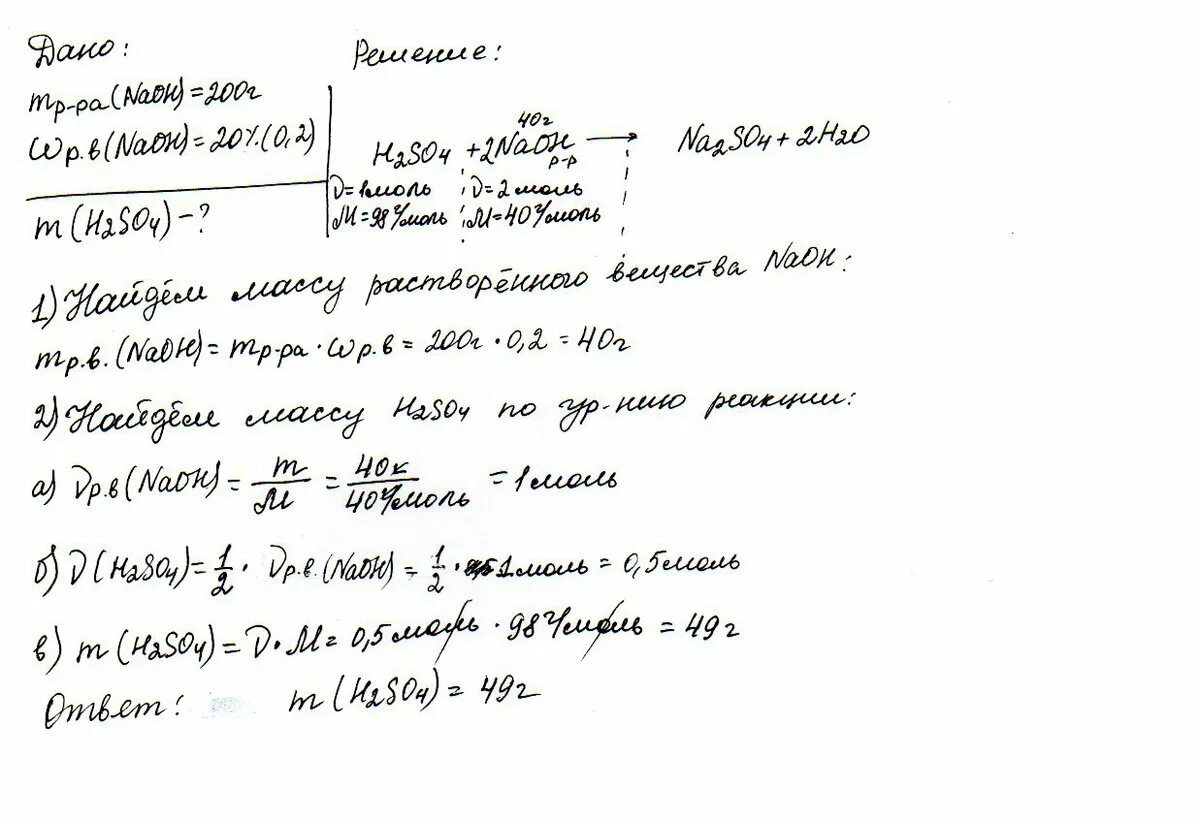 Дано:
Решение:
mр-ра(NaOH)=200г
ωр.в(NaOH)=20%(0,2)
m(H2SO4)-?
40г
H2SO4 + 2NaOH → Na2SO4 + 2H2O
р-р
ν=1моль ν=2моль
M=98г/моль M=40г/моль
1) Найдём массу растворённого вещества NaOH:
mр.в.(NaOH)= mр-ра · ωр.в = 200г · 0,2 = 40г
2) Найдём массу H2SO4 по ур-нию реакции:
а) νр.в(NaOH) = m/M = 40г/40г/моль = 1моль
б) ν(H2SO4)= 1/2 · νр.в.(NaOH) = 1/2 · 1моль = 0,5моль
в) m(H2SO4)= ν·M= 0,5моль · 98г/моль = 49г
Ответ: m(H2SO4)= 49г